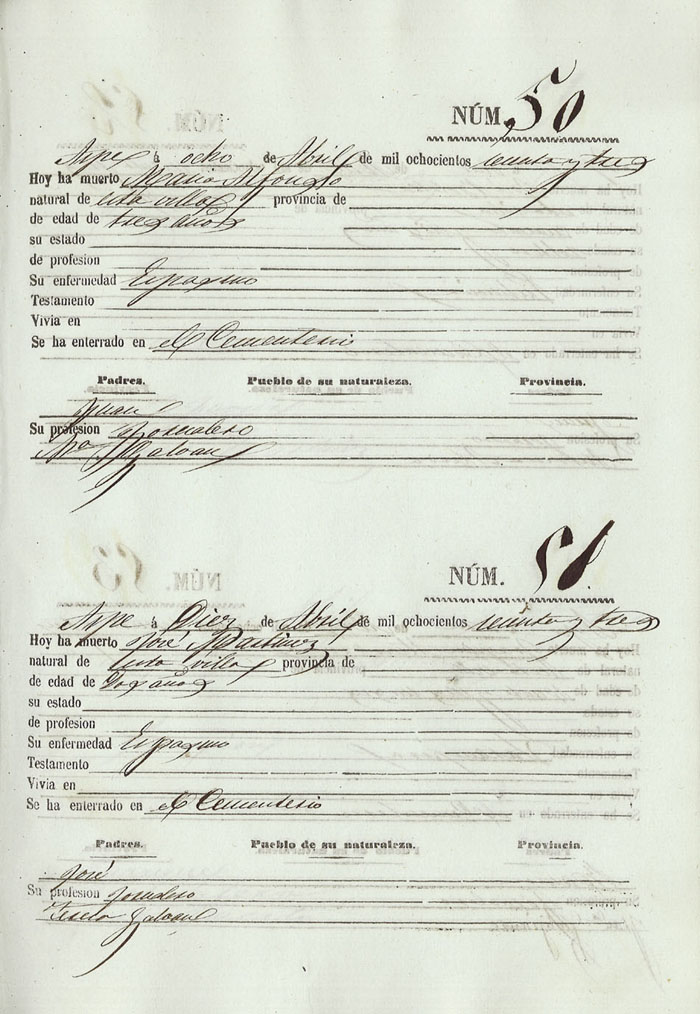 NÚM. 50
Aspe á ocho de Abril de mil ochocientos sesenta y tres
Hoy ha muerto Maria Alfonso
natural de esta villa provincia de
de edad de tres años
su estado
de profesion
Su enfermedad Espasmo
Testamento
Vivia en
Se ha enterrado en el Cementerio
Padres. Pueblo de su naturaleza. Provincia.
Juan
Su profesion Jornalero
NÚM. 51.
Aspe á Diez de Abril de mil ochocientos sesenta y tres
Hoy ha muerto José Martinez
natural de esta villa provincia de
de edad de dos años
su estado
de profesion
Su enfermedad Espasmo
Testamento
Vivia en
Se ha enterrado en el Cementerio
Padres. Pueblo de su naturaleza. Provincia.
José
Su profesion Jornalero